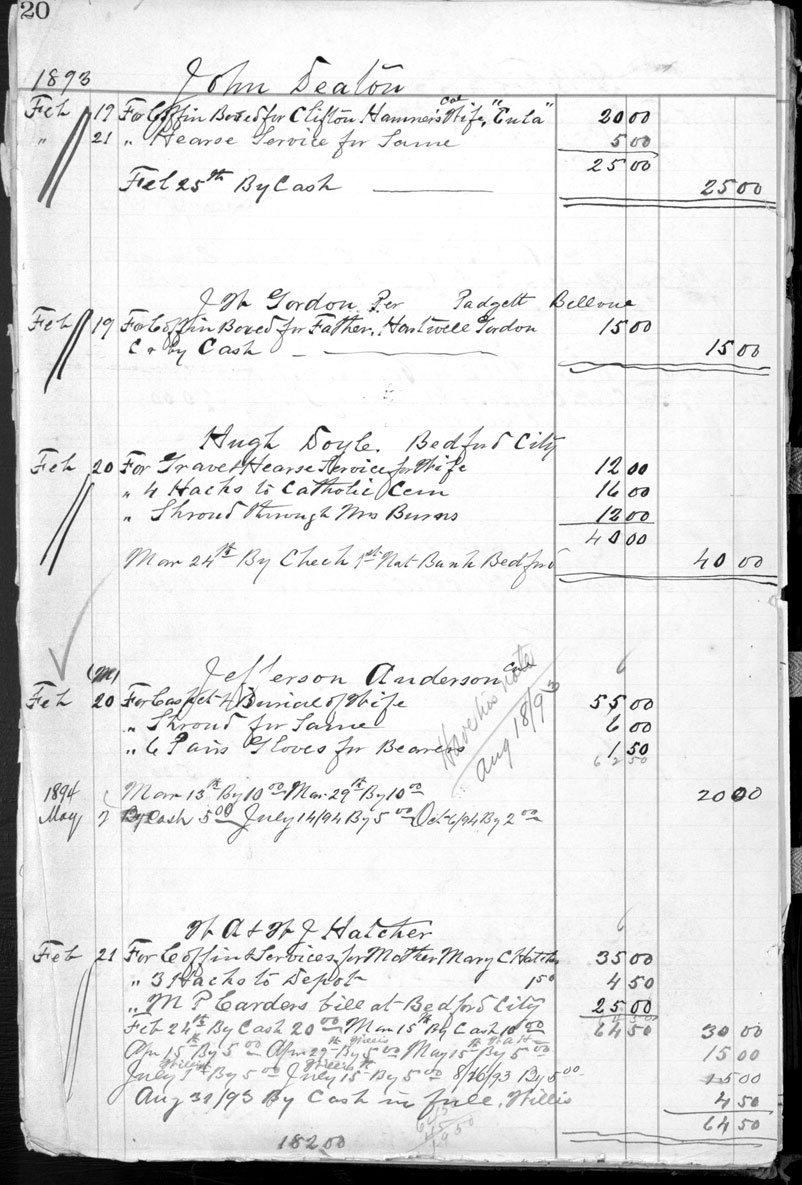 20
1893 John Deaton
Feb 19 For Coffin Boxed for Clifton Hamner's Col Wife, "Eula" 20 00
" 21 " Hearse Service for Same 5 00
25 00
Feb 25th By Cash 25 00
J W Gordon Per Padgett Bellone
Feb 19 For Coffin Boxed for Father, Hartwell Gordon 15 00
Cr by Cash 15 00
Hugh Doyle, Bedford City
Feb 20 For Grave & Hearse Service for Wife 12 00
" 4 Hacks to Catholic Cem 16 00
" Shroud through Mrs Burns 12 00
40 00
Mar 24th By Check 1st Nat Bank Bedford 40 00
(M) Jefferson Anderson Col
Feb 20 For Casket & Burial of Wife 55 00
" Shroud for Same 6 00
" 6 Pairs Gloves for Bearers 1 50
62 50
Have his note
Aug 18/93
1894 Mar 13th By 10 00 Mar 29th By 10 00 20 00
May 7 By Cash 5 00 July 14/94 By 5 00 Oct 6/94 By 2 00
W A & W J Hatcher
Feb 21 For Coffin & Services for Mother Mary C Hatcher 35 00
" 3 Hacks to Depot 1 50 4 50
" M P Carders bill at Bedford City 25 00
Feb 24th By Cash 20 00 Mar 15th By Cash 10 00 64 50 30 00
Apr 15th By 5 00 Apr 29th Willis By 5 00 May 15th By 5 00 15 00
July 1st Willis By 5 00 July 15th Willis By 5 00 8/16/93 By 5 00 15 00
Aug 31/93 By Cash in full, Willis 4 50
64 50
182 00